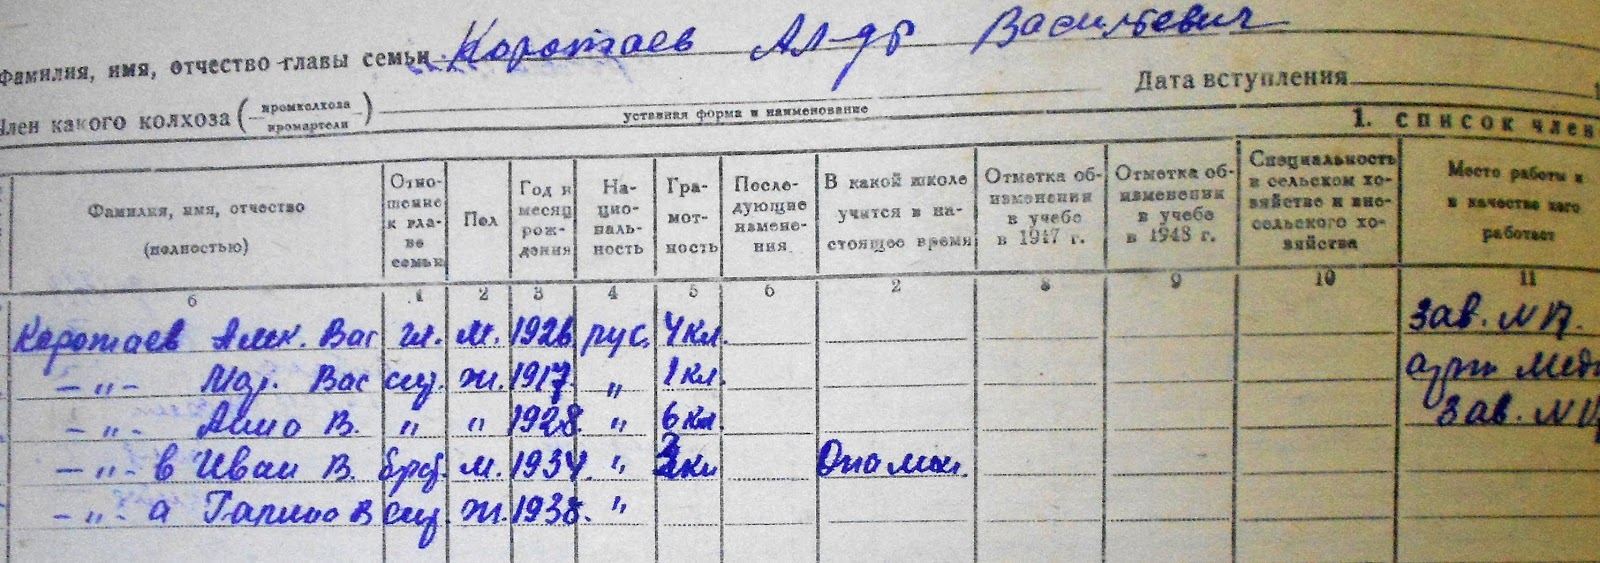 Фамилия, имя, отчество главы семьи Коротаев Ал-др Васильевич
Член какого колхоза (промколхоза промартели) уставная форма и наименование Дата вступления
1. СПИСОК ЧЛЕН
Фамилия, имя, отчество (полностью) Отношение к главе семьи Пол Год и месяц рождения Национальность Грамотность Последующие изменения В какой школе учится в настоящее время Отметка об изменении в учебе в 1947 г. Отметка об изменении в учебе в 1948 г. Специальность в сельском хозяйстве и вне сельского хозяйства Место работы и в качестве кого работает
6 1 2 3 4 5 6 2 8 9 10 11
Коротаев Алек. Вас гл. м. 1926 рус. 4 кл. Зав. N 17.
–„– Вас сес. ж. 1917 „ 1 кл.
–„– В. „ „ 1928 „ 6 кл. Зав. N
–„– в Иван В. брат м. 1934. „
–„– а В сес. ж. 1938. „